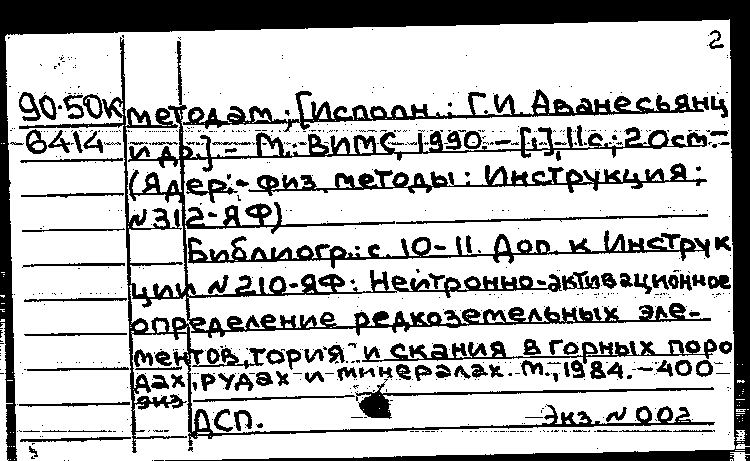 2
90-50к методам; [Исполн.: Г.И. Аванесьянц
6414 и др.] - М.: ВИМС, 1990. - [1], 11 с.; 20 см. -
(Ядер.-физ. методы: Инструкция;
N 312-ЯФ)
Библиогр.: с. 10-11. Доп. к Инструк
ции N 210-ЯФ: Нейтронно-активационное
определение редкоземельных эле-
ментов, тория и скания в горных поро
дах, рудах и минералах. М., 1984. - 400
экз
ДСП. Экз. N 002